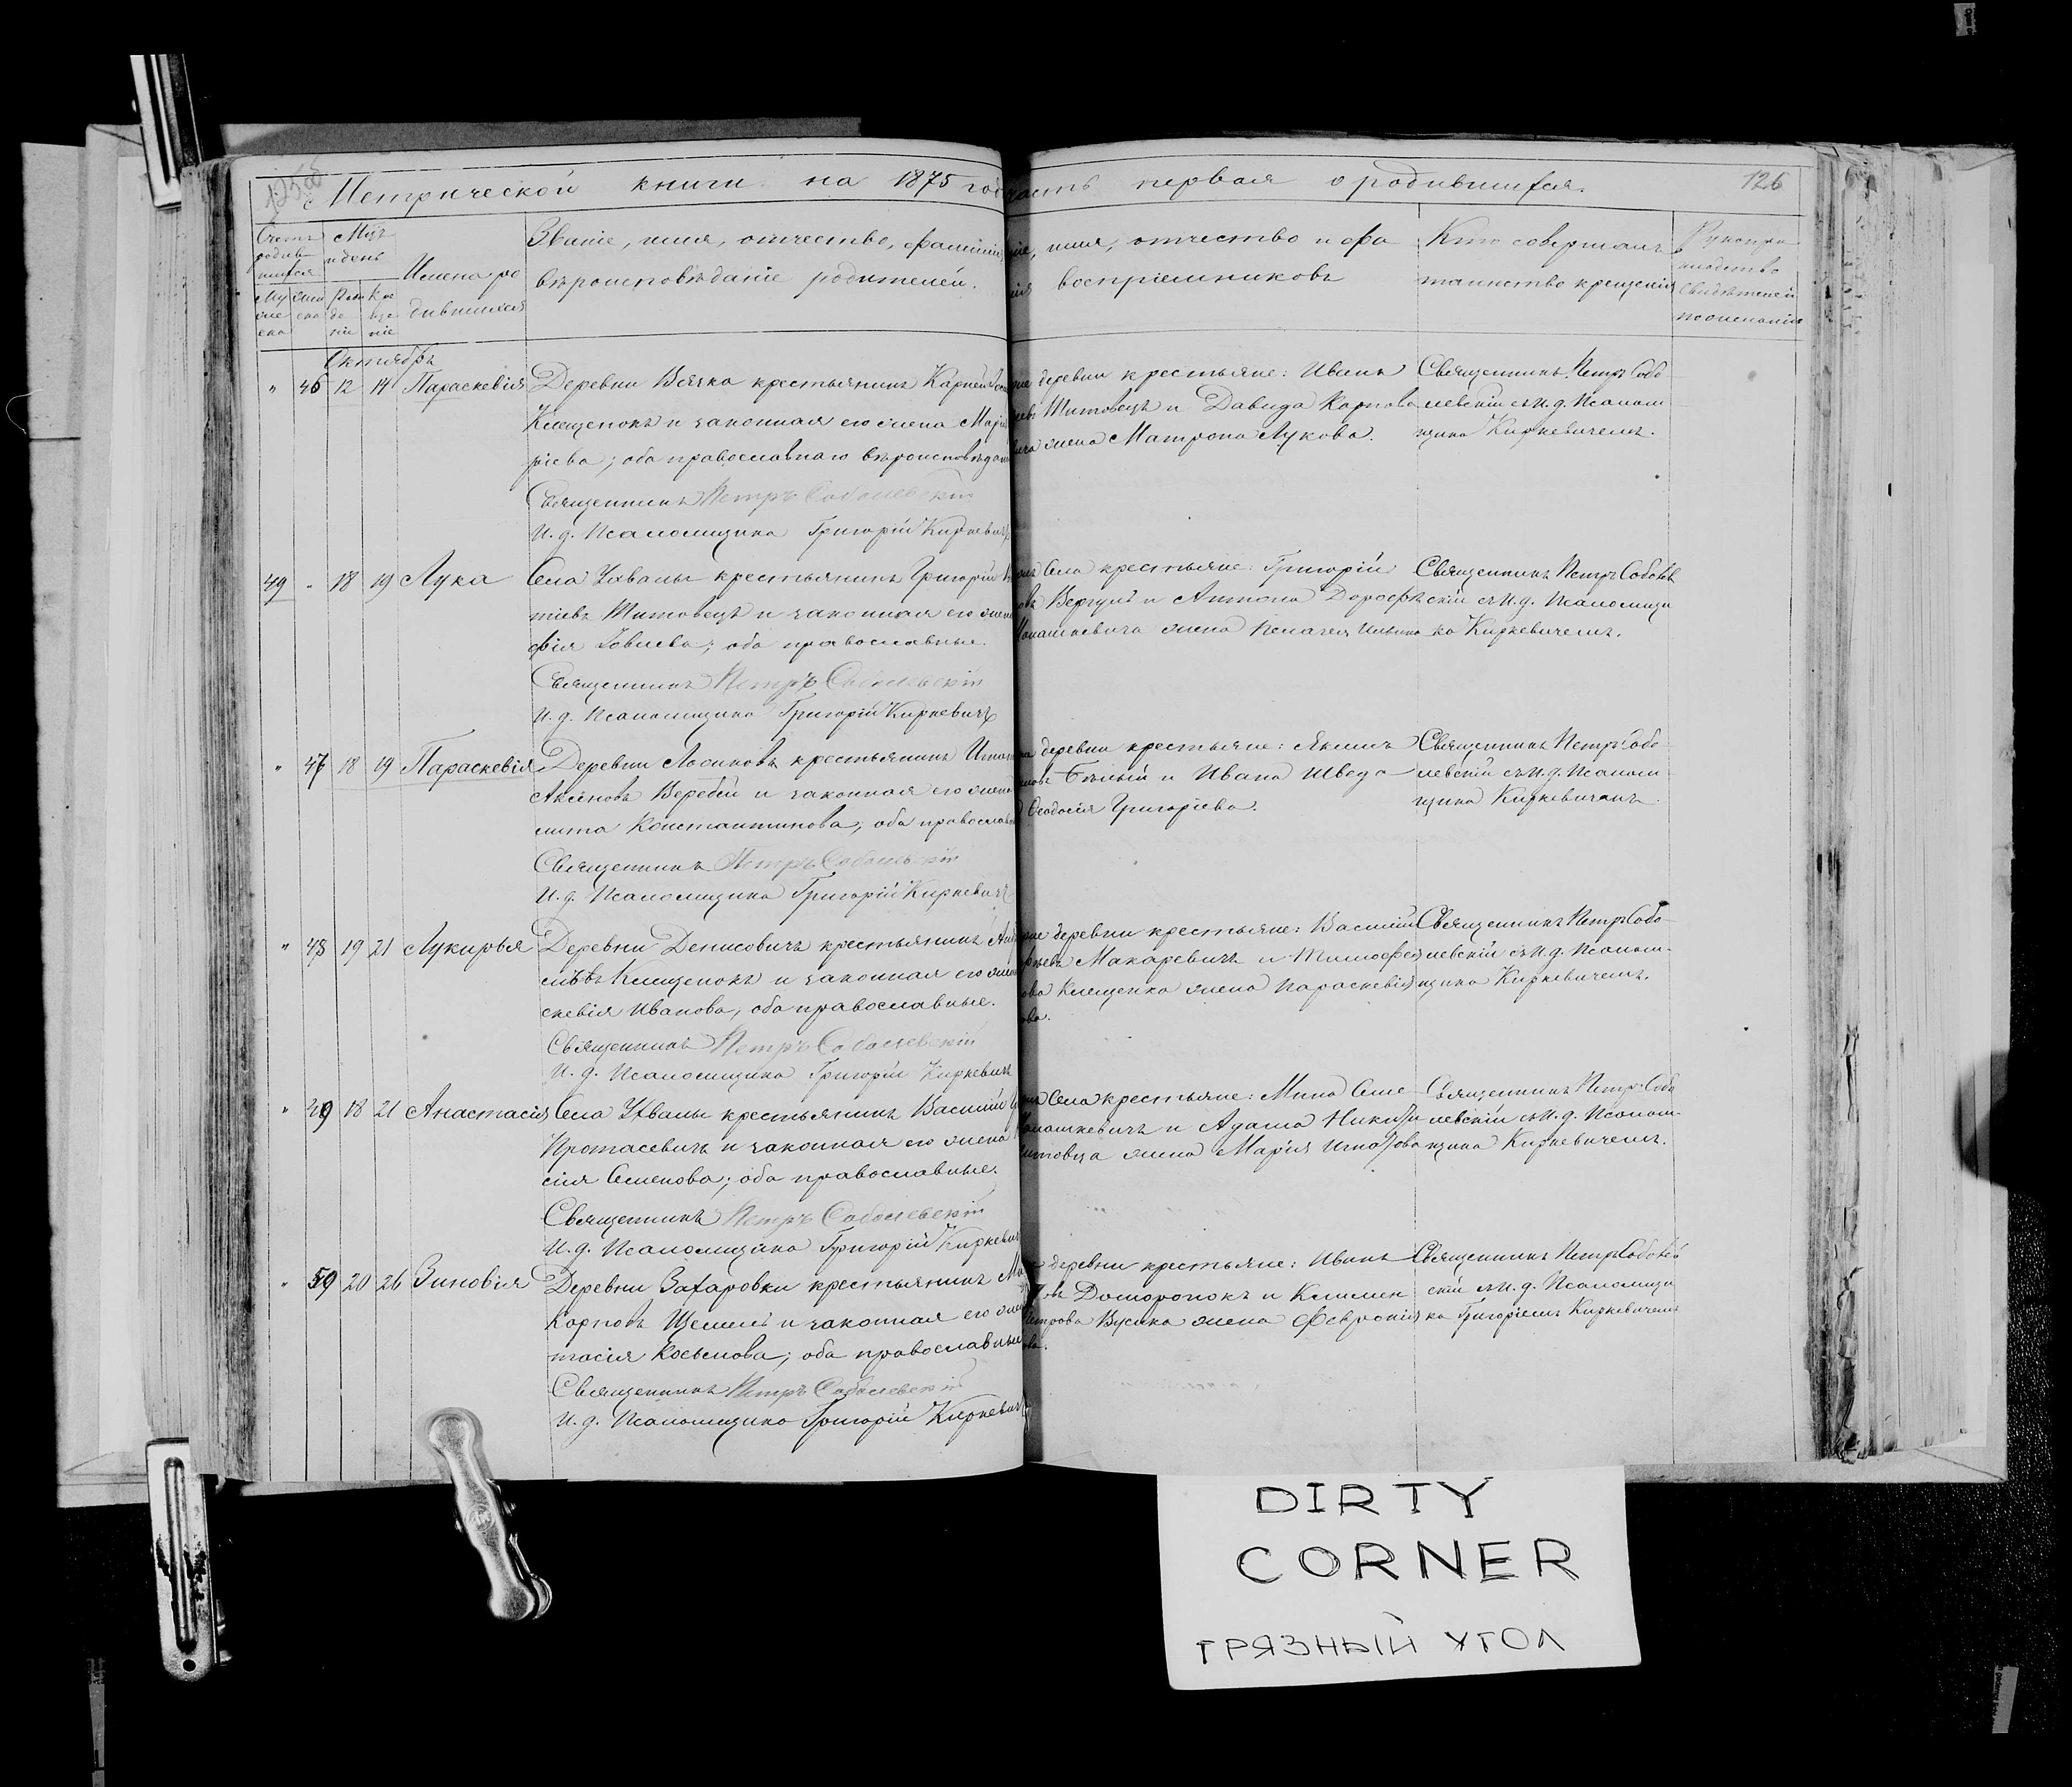 Метрической книги на 1875 год часть первая о родившихся.
126
Счетъ родившихся
Мцъ и день
Имена родившихся
Званіе, имя, отчество, фамилія
вѣроисповѣданіе родителей.
имя, отчество и фа
воспріемниковъ
Кто совершалъ
таинство крещенія
Октябрь
" 46 12 14 Параскевія
Деревни Всячка крестьянинъ Карней
Клещенокъ и законная его жена
ріева; оба православнаго
Священникъ Петръ Соболевскій
И. д. Псаломщика Григорій Киркевичъ
деревни крестьяне: Иванъ
Титовецъ и Давида Карпова
жена Матрона Лукова.
Священникъ Петръ Собо
левскій съ И. д. Псалом
щика Киркевичемъ.
49 " 18 19 Лука
Села Ухвалы крестьянинъ Григорій
тіевъ Титовецъ и законная его жена
фія Іовлева; оба православные.
Священникъ Петръ Соболевскій
И. д. Псаломщика Григорій Киркевичъ
Села крестьяне: Григорій
Вергунъ и Антона Дорофѣ
жена Пелагея
Священникъ Петръ Соболев
скій съ И. д. Псаломщи
ка Киркевичемъ.
" 47 18 19 Параскевія
Деревни крестьянинъ
Аксеновъ Веребей и законная его жена
мита Константинова; оба
Священникъ Петръ Соболевскій
И. д. Псаломщика Григорій Киркевичъ
деревни крестьяне: Якимъ
Бѣлый и Ивана Шведа
Ѳеодосія Григоріева.
Священникъ Петръ Собо
левскій съ И. д. Псалом
щика Киркевичемъ.
" 48 19 21 Лукирья
Деревни Денисовичъ крестьянинъ
Клещенокъ и законная его жена
скевія Иванова; оба православные.
Священникъ Петръ Соболевскій
И. д. Псаломщика Григорій Киркевичъ
деревни крестьяне: Василій
Макаревичъ и Тимофея
Клещенка жена Параскевія
ова.
Священникъ Петръ Собо
левскій съ И. д. Псалом
щика Киркевичемъ.
" 49 18 21 Анастасія
Села Ухвалы крестьянинъ Василій
Протасевичъ и законная его жена
сія Семенова; оба православные.
Священникъ Петръ Соболевскій
И. д. Псаломщика Григорій Киркевичъ
Села крестьяне: Мина Семе
и Адама
жена Марія
Священникъ Петръ Собо
левскій съ И. д. Псалом
щика Киркевичемъ.
" 50 20 26 Зиновія
Деревни Захаровки крестьянинъ
Карповъ и законная его жена
тасія Косьмова; оба православные
Священникъ Петръ Соболевскій
И. д. Псаломщика Григорій Киркевичъ
деревни крестьяне: Иванъ
Доморонокъ и Климен
Петрова Бусика жена Февронія
ова.
Священникъ Петръ Соболев
скій съ И. д. Псаломщи
ка Григоріемъ Киркевичемъ
DIRTY
CORNER
ГРЯЗНЫЙ УГОЛ